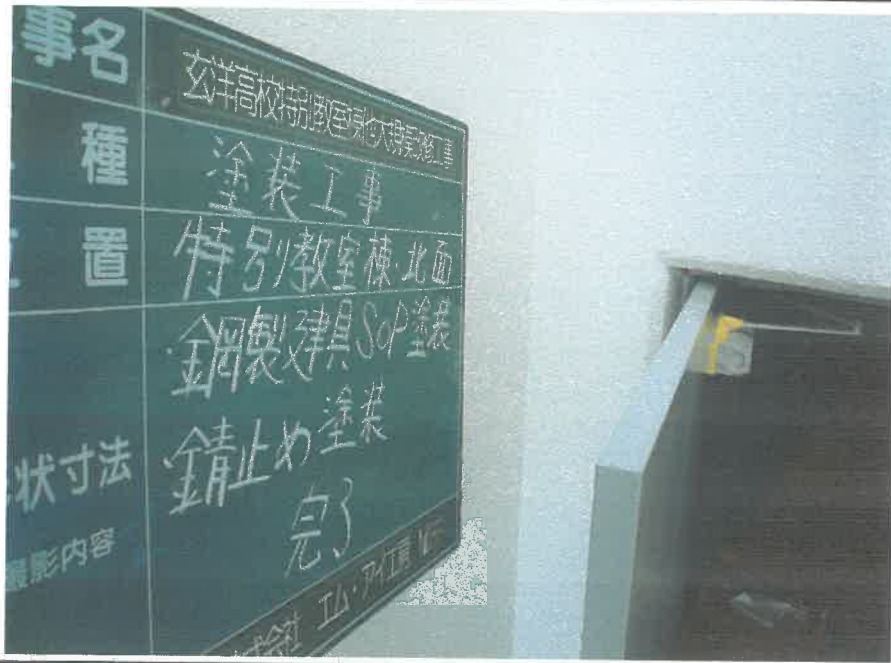 事名 玄洋高校特別教室棟他大規模改修工事
種 塗装工事
置 特別教室棟・北面
鋼製建具SOP塗装
状寸法 錆止め塗装
完了
撮影内容
式会社 エム・アイ工房